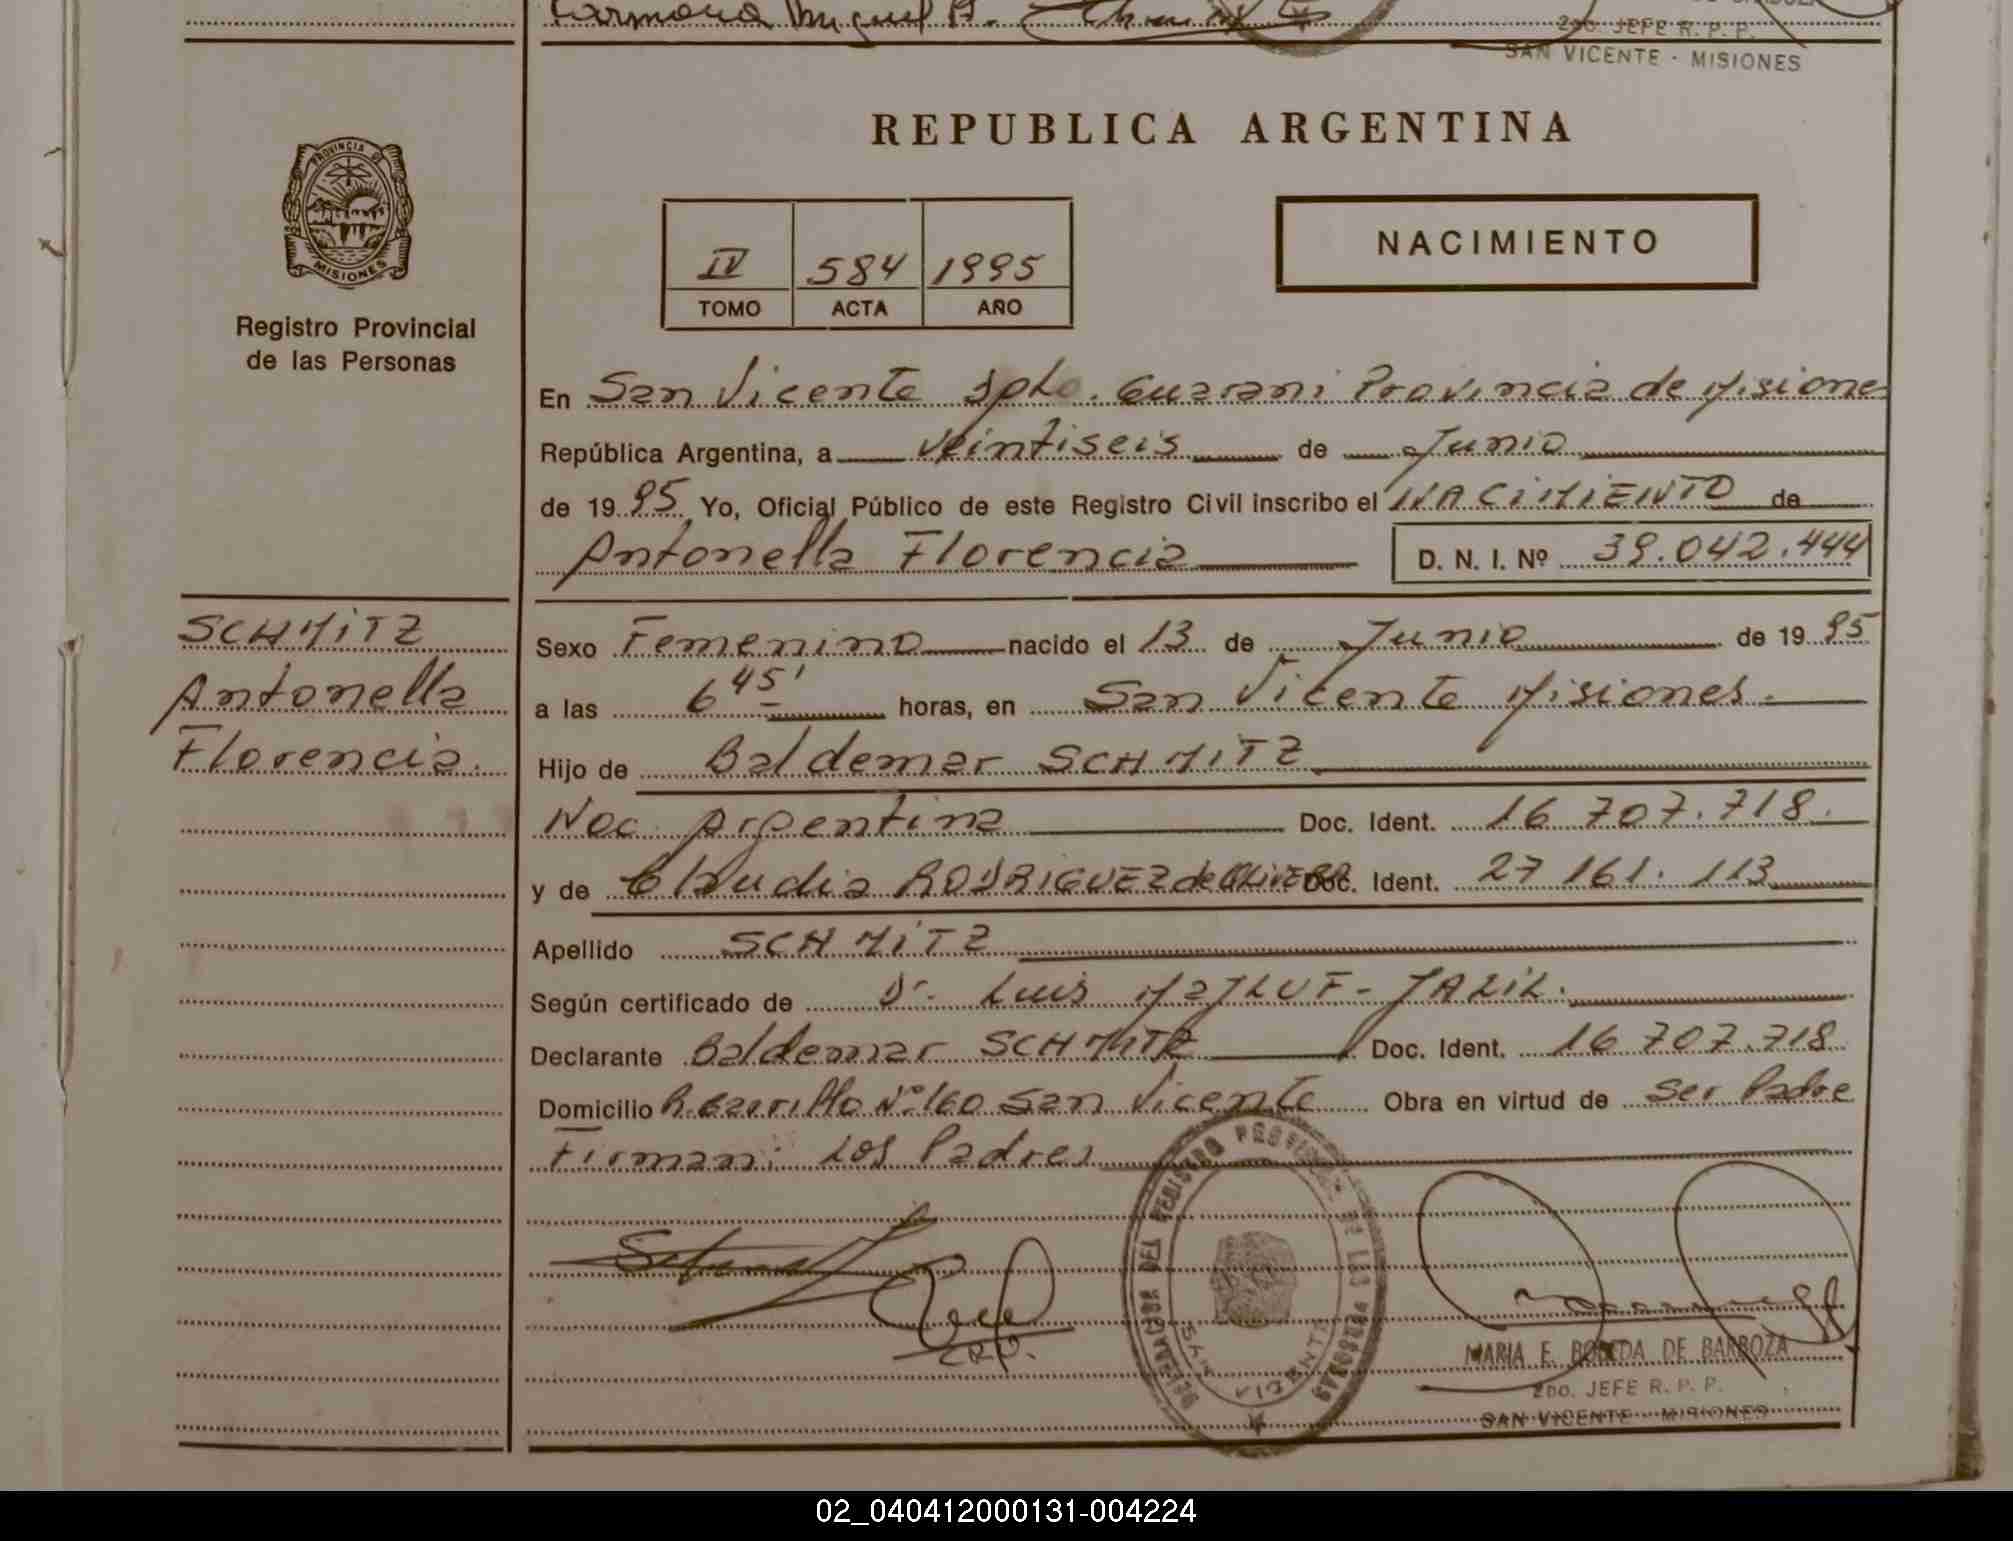 Carmona Miguel A.
2do. JEFE R. P. P.
SAN VICENTE - MISIONES
REPUBLICA ARGENTINA
PROVINCIA DE
MISIONES
Registro Provincial
de las Personas
IV 584 1995
TOMO ACTA AÑO
NACIMIENTO
En San Vicente Dpto. Guarani Provincia de Misiones
República Argentina, a Veintiseis de Junio
de 1995 Yo, Oficial Público de este Registro Civil inscribo el NACIMIENTO de
Antonella Florencia D. N. I. Nº 39.042.444
SCHMITZ
Antonella
Florencia.
Sexo Femenino nacido el 13 de Junio de 1995
a las 6 45' horas, en San Vicente Misiones.
Hijo de Baldemar SCHMITZ
Nac. Argentina Doc. Ident. 16 707.718.
y de Claudia RODRIGUEZ de OLIVERA Doc. Ident. 27 161. 113
Apellido SCHMITZ
Según certificado de Dr. Luis MAJLUF-JALIL.
Declarante Baldemar SCHMITZ Doc. Ident. 16 707.718
Domicilio Bº Carrillo Nº 160 San Vicente Obra en virtud de Ser Padre
Firman: Los Padres
DELEGACION DEL REGISTRO PROVINCIAL DE LAS PERSONAS
SAN VICENTE
MARIA E. BOVEDA DE BARBOZA
2DO. JEFE R. P. P.
SAN VICENTE - MISIONES
02_040412000131-004224